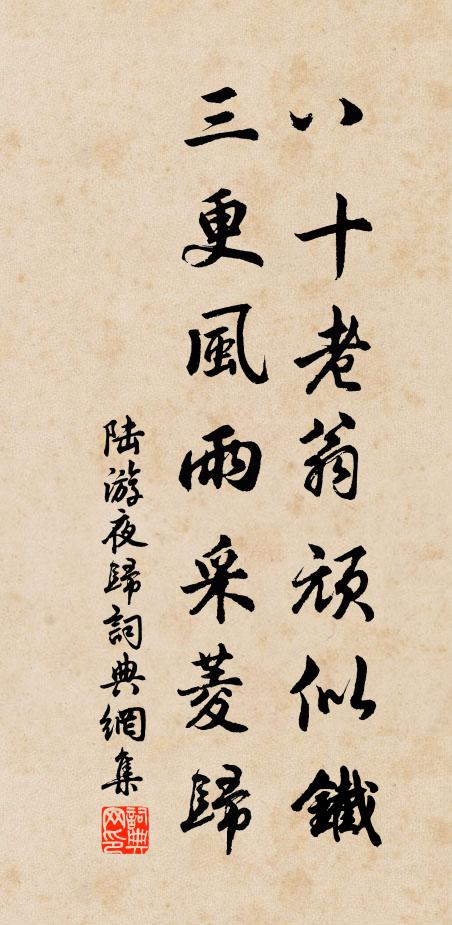 八十老翁頑似鐵
三更風雨采菱歸
陆游夜歸詞典網集
詞典网印